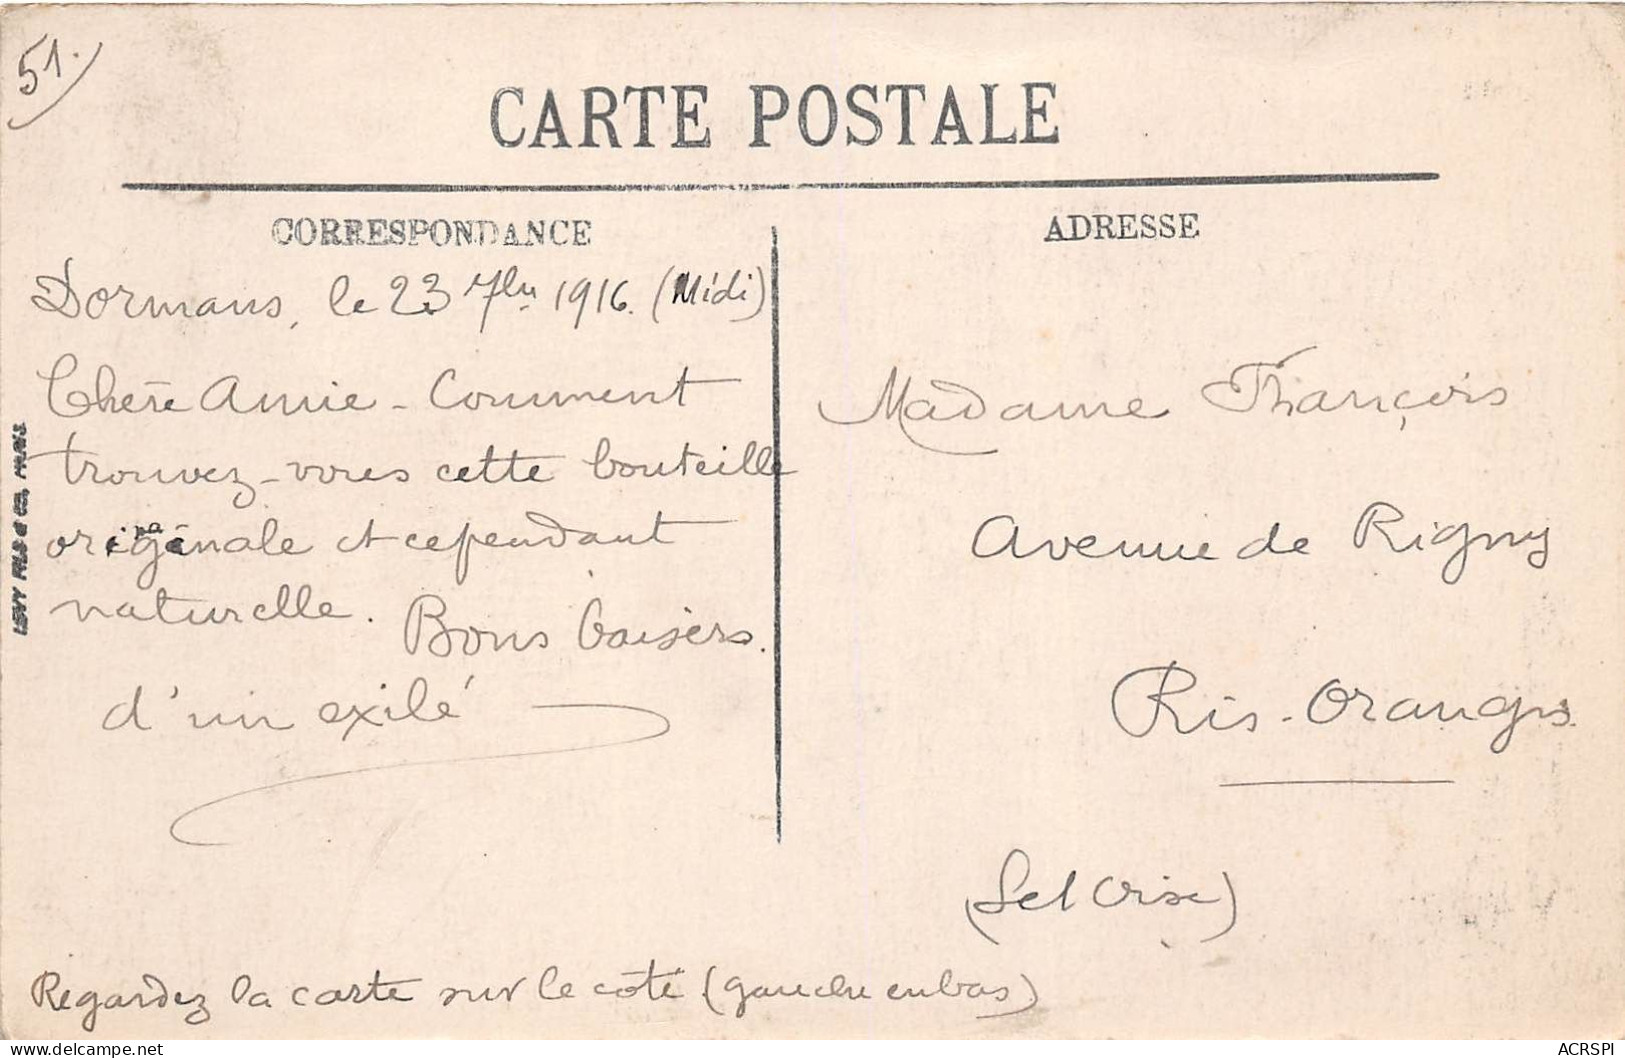 51.
CARTE POSTALE
CORRESPONDANCE
Dormans, le 23 7bre 1916. (Midi)
Chère Amie - Comment
trouvez-vous cette bouteille
originale et cependant
naturelle. Bons baisers.
d'un exilé
ADRESSE
Madame François
Avenue de Rigny
Ris-Orangis
(S et Oise)
Regardez la carte sur le côté (gauche en bas)
LEVY FILS & Co, PARIS
ACRSPI